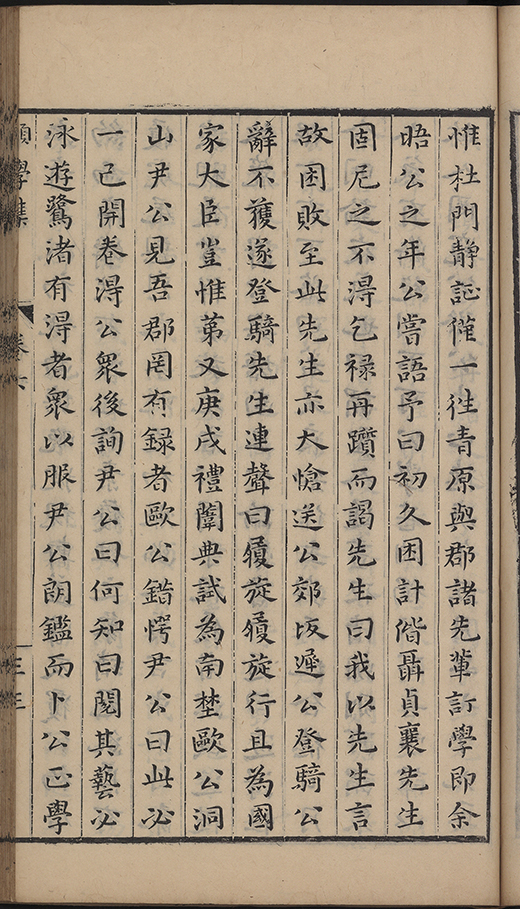 惟杜門靜証僅一徃青原與郡諸先軰訂學即余
晤公之年公嘗語予曰初久困計偕聶貞襄先生
固尼之不淂乞禄再躓而謁先生曰我以先生言
故困敗至此先生亦大愴送公郊坂遲公登騎公
辭不獲遂登騎先生連聲曰履旋履旋行且為國
家大臣豈惟苐又庚戌禮闈典試為南埜歐公洞
山尹公見吾郡罔有録者歐公錯愕尹公曰此必
一已開卷淂公衆後詢尹公曰何知曰閱其藝必
泳遊鷺渚有淂者衆以服尹公朗鑑而卜公正學
學集
卷六
三三